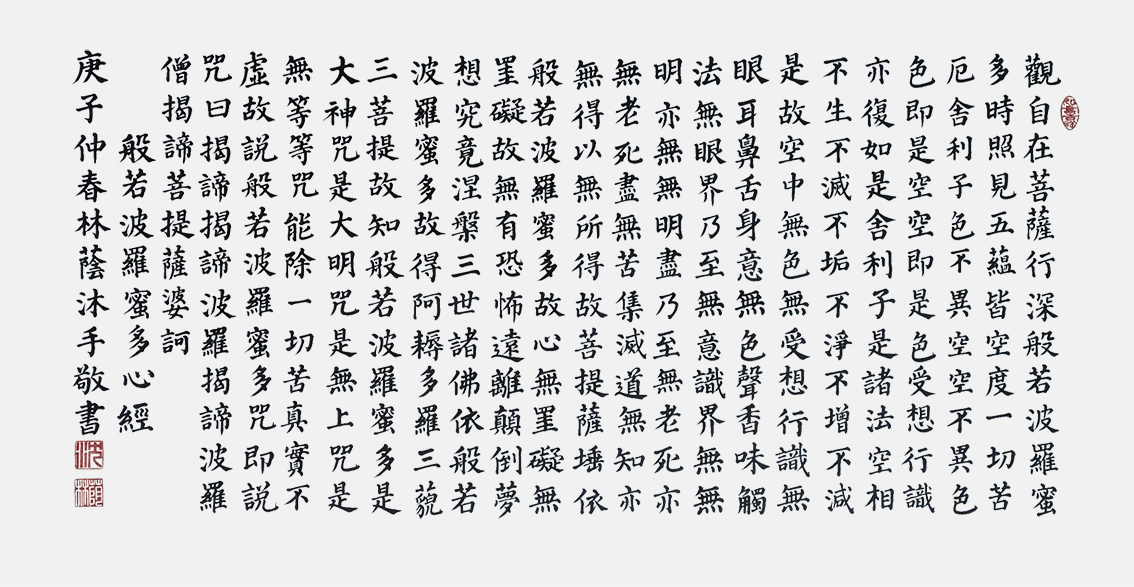 觀自在菩薩行深般若波羅蜜
多時照見五蘊皆空度一切苦
厄舍利子色不異空空不異色
色即是空空即是色受想行識
亦復如是舍利子是諸法空相
不生不滅不垢不淨不增不減
是故空中無色無受想行識無
眼耳鼻舌身意無色聲香味觸
法無眼界乃至無意識界無無
明亦無無明盡乃至無老死亦
無老死盡無苦集滅道無知亦
無得以無所得故菩提薩埵依
般若波羅蜜多故心無罣礙無
罣礙故無有恐怖遠離顛倒夢
想究竟涅槃三世諸佛依般若
波羅蜜多故得阿耨多羅三藐
三菩提故知般若波羅蜜多是
大神咒是大明咒是無上咒是
無等等咒能除一切苦真實不
虛故説般若波羅蜜多咒即説
咒曰揭諦揭諦波羅揭諦波羅
僧揭諦菩提薩婆訶
般若波羅蜜多心經
庚子仲春林蔭沐手敬書